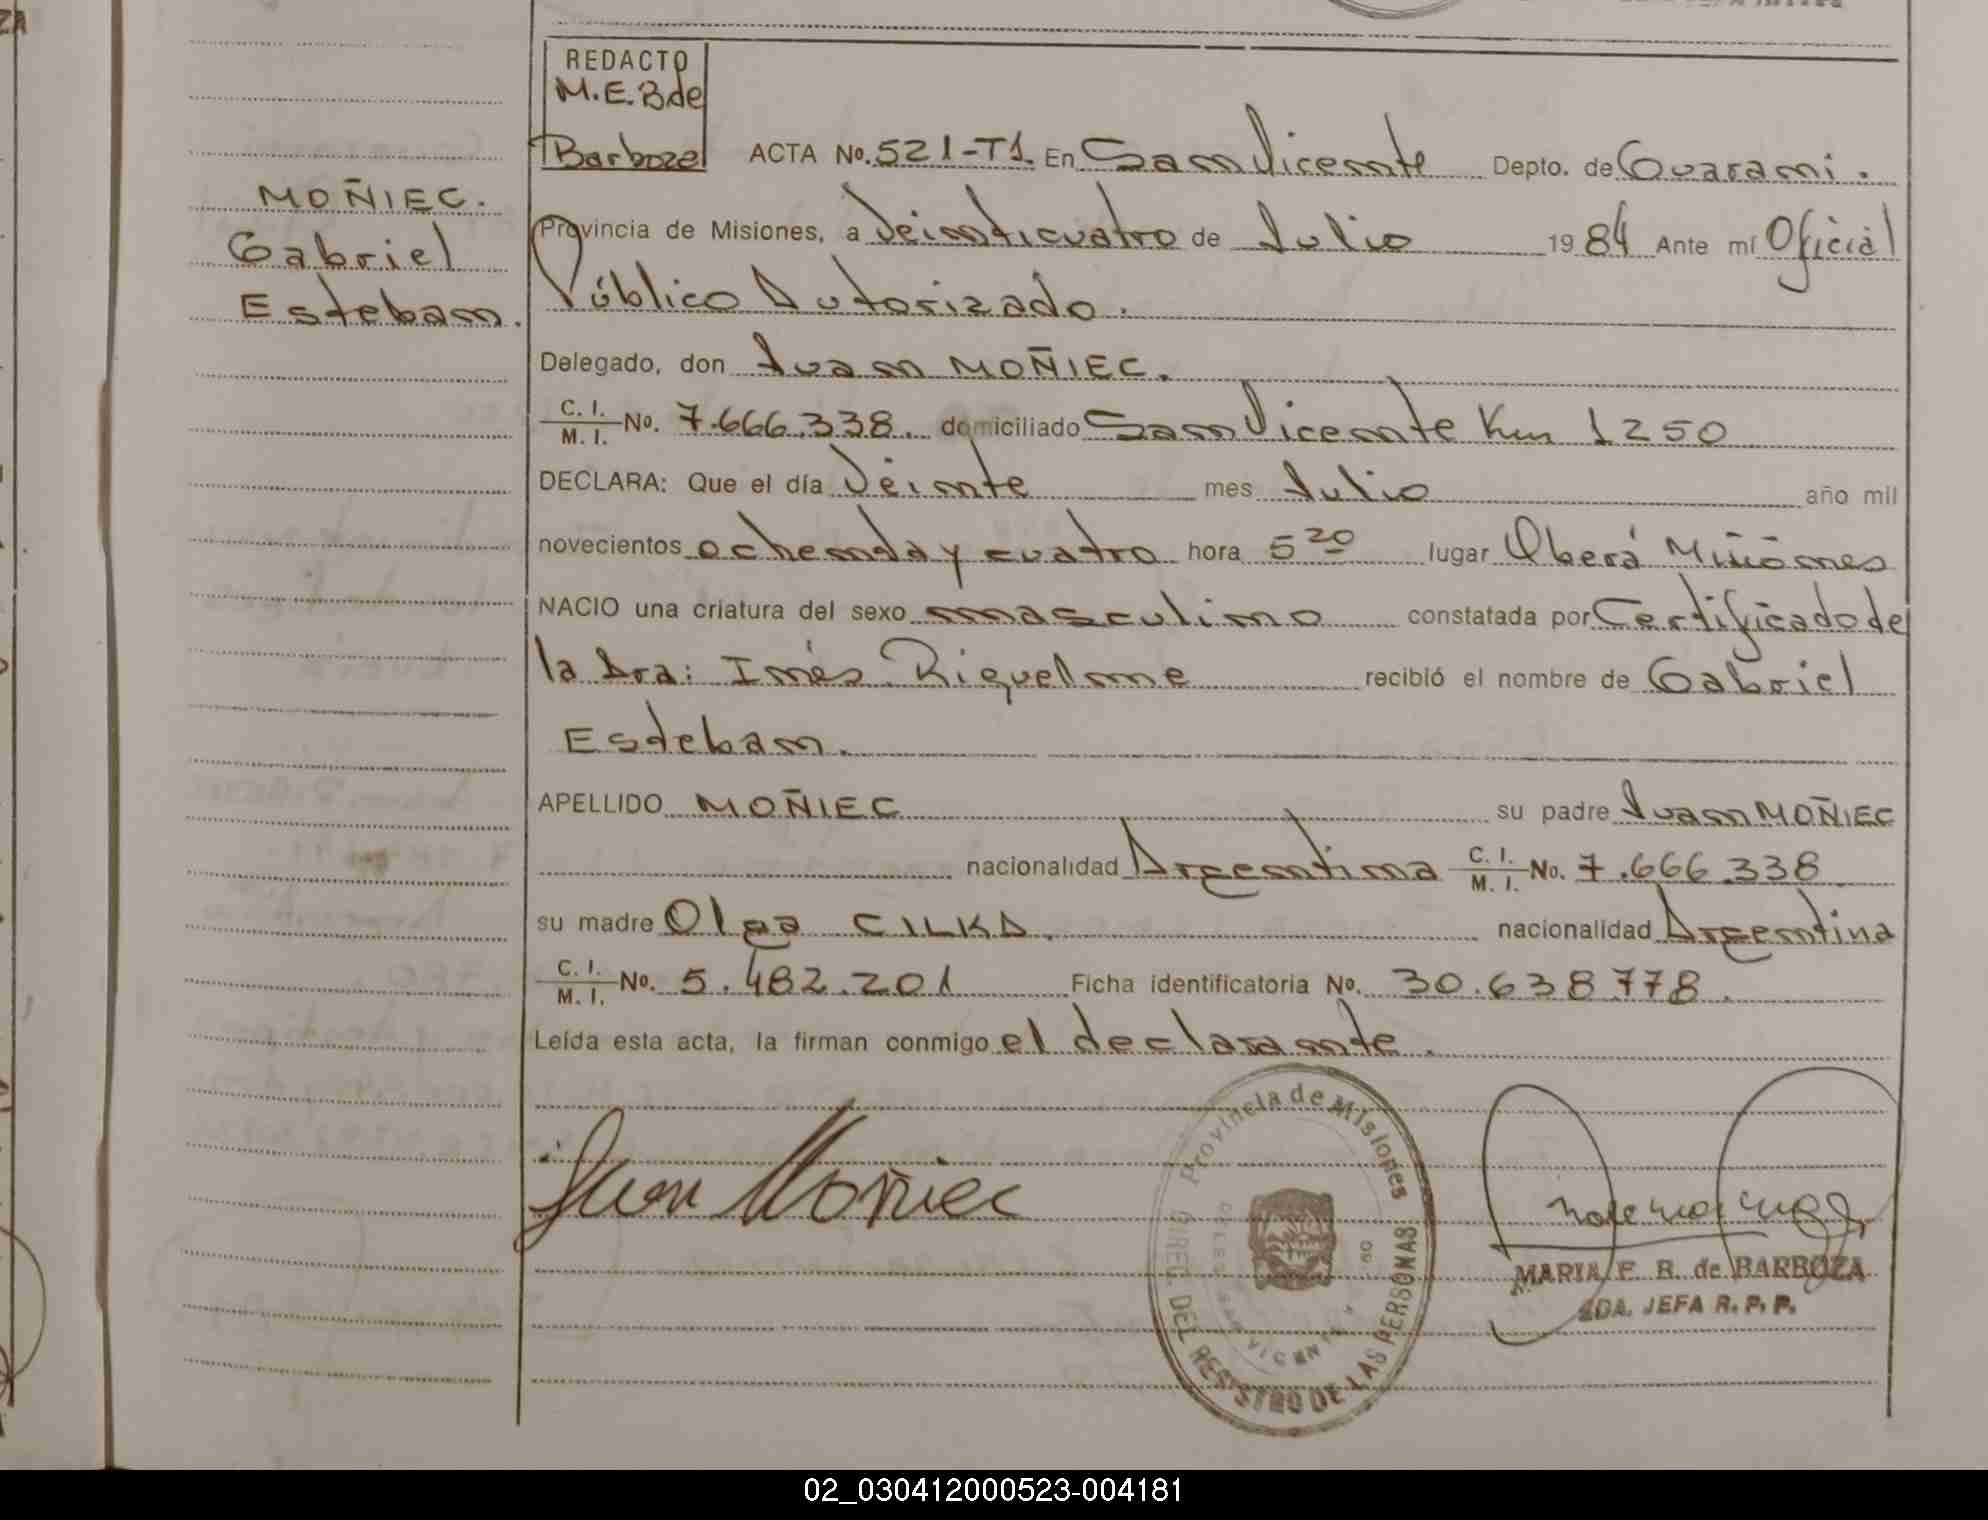 REDACTO
M.E.B de
Barboza
ACTA No. 521-T1. En San Vicente Depto. de Guarani.
MOÑIEC.
Gabriel
Esteban.
Provincia de Misiones, a Veinticuatro de Julio 1984 Ante mí Oficial
Público Autorizado.
Delegado, don Juan MOÑIEC.
C. I.
M. I. No. 7.666.338. domiciliado San Vicente Km 1250
DECLARA: Que el día Veinte mes Julio año mil
novecientos ochenta y cuatro hora 5 20 lugar Oberá Misiones
NACIO una criatura del sexo masculino constatada por Certificado de
la Dra: Inés Riquelme recibió el nombre de Gabriel
Esteban.
APELLIDO MOÑIEC su padre Juan MOÑIEC
nacionalidad Argentina C. I.
M. I. No. 7.666.338
su madre Olga CILKA. nacionalidad Argentina
C. I.
M. I. No. 5.482.201 Ficha identificatoria No. 30.638.778.
Leída esta acta, la firman conmigo el declarante.
Juan Moñiec
Provincia de Misiones
DEL REGISTRO DE LAS PERSONAS
SAN VICENTE
MARIA E. B. de BARBOZA
2DA. JEFA R. P. P.
02_030412000523-004181